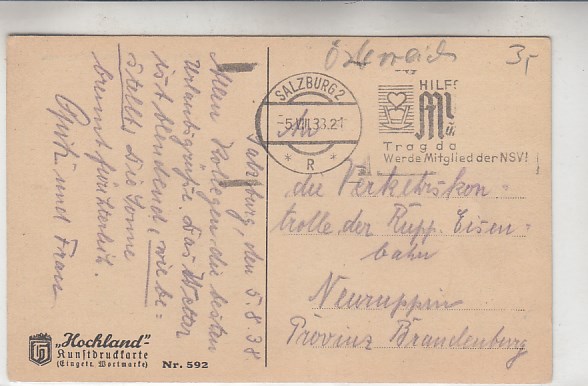 Österreich
3,-
SALZBURG 2
-5.VIII.38.21
* R *
HILFS
MU
Trag da
Werde Mitglied der NSV!
Salzburg, den 5.8.38
Allen Kollegen die besten
Urlaubsgrüße. Das Wetter
ist blendend, wie be=
stellt. Die Sonne
brennt fürchterlich.
Opitz und Frau
An
die Verkehrskon=
trolle der Rupp. Eisen=
bahn
Neuruppin
Provinz Brandenburg
„Hochland"-
Kunstdruckkarte
(Eingetr. Wortmarke) Nr. 592